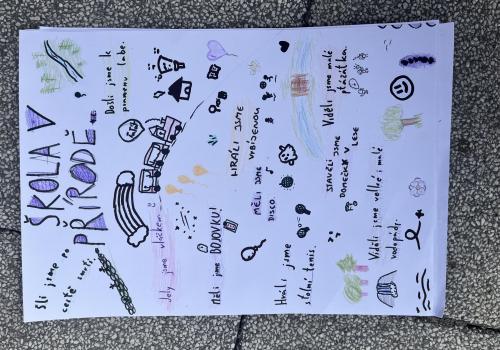 ŠKOLA V
PŘÍRODĚ
Šli jsme po
cestě smrti.
Došli jsme k
pramenu labe.
Jely jsme vláčkem
Měli jsme BOJOVKU!
HRÁLI JSME
VYBÍJENOU
MĚLI JSME
DISCO.
Hráli jsme
stolní tenis.
Viděli jsme malé
ptáčátka.
STAVĚLI JSME
DOMEČKY V LESE
Viděli jsme velké i malé
vodopády.